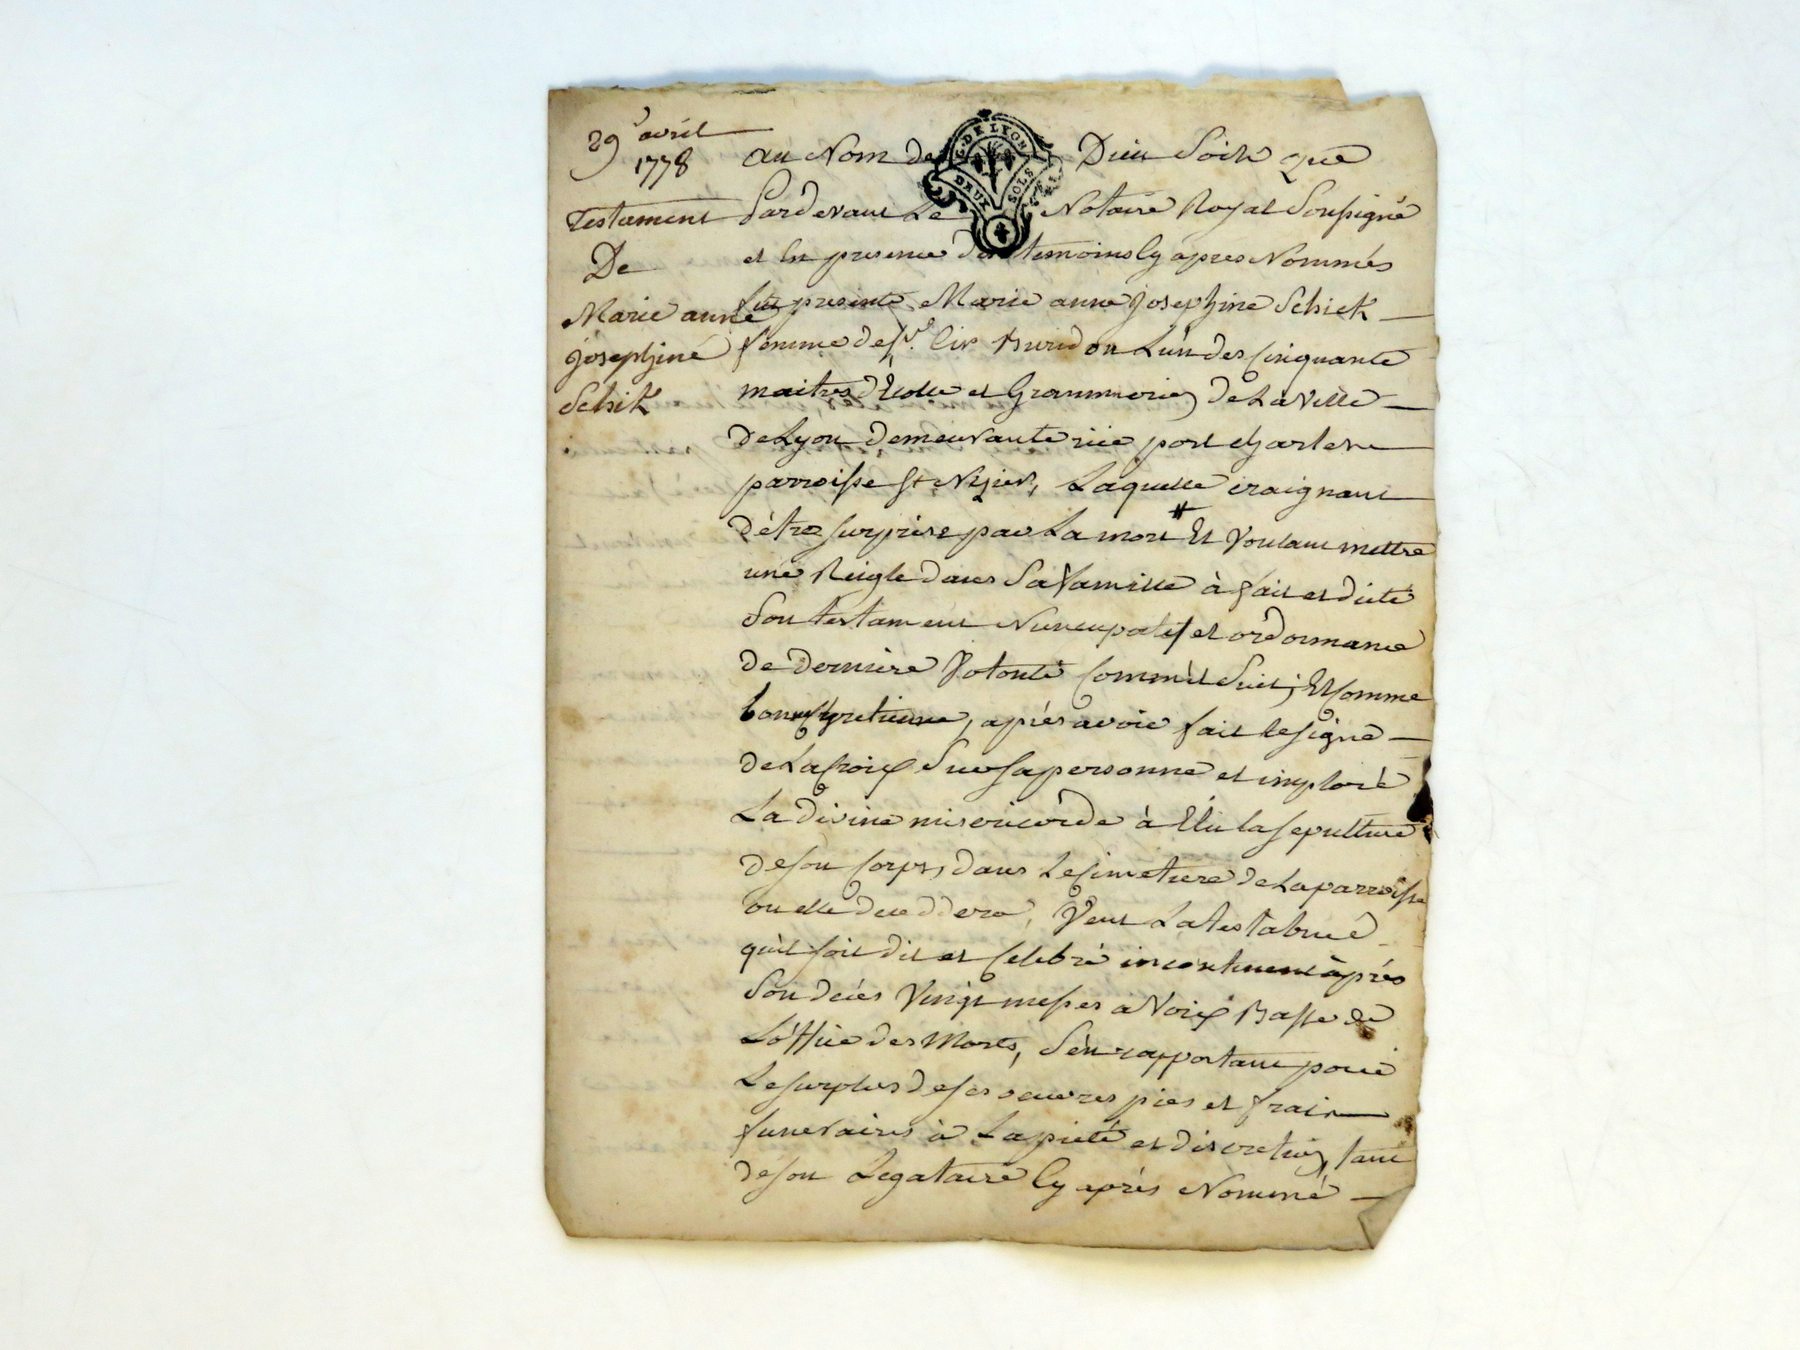 29 avril
1778
Testament
De
Marie anne
josephine
Schik
G. DE LYON
DEUX SOLS
au Nom de Dieu Soit que
Pardevant Le Notaire Royal Soussigné
et En presence des temoins Cy apres Nommés
fut presente Marie anne josephine Schick
femme de Sr. Buridon L'un des Cinquante
maitres d'Ecolle et Grammerie de La Ville
de Lyon demeurante rüe port charlere
parroisse St Nizier, Laquelle craignant
d'être surprise par La mort # Et Voulant mettre
une Reigle dans Sa famille à fait et dicté
Son testament Nuncupatif et ordonnance
de derniere Volonté Comm'il Suit; Et Comme
bonne Chretienne, après avoir fait le signe
de La Croix Sur sa personne et imploré
La divine misericorde à Elu la sepulture
de son Corps, dans Le Cimetiere de La parroisse
ou elle decedera, Veut La testatrice
qu'il soit dit et Celebré incontinent après
Son decés Vingt messes a Voix Basse de
L'office des Morts, S'en rapportant pour
Le surplus de ses oeuvres pies et frais
funeraires à La pieté et discretion, tant
de son Legataire Cy après Nommé